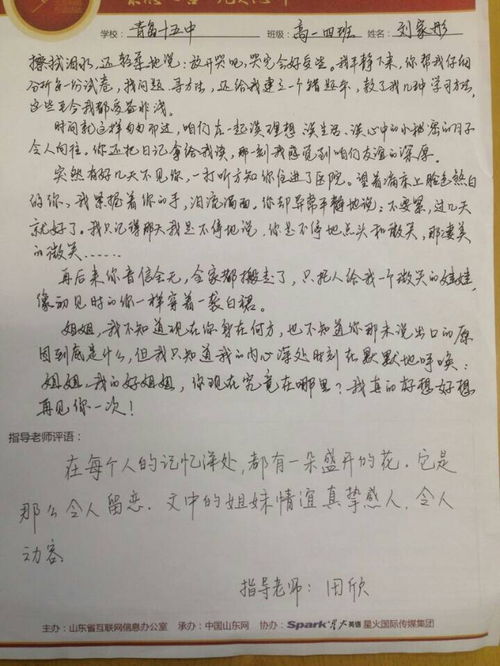 学校：青岛十五中 班级：高一四班 姓名：刘家彤
擦拭泪水，还轻柔地说：放开哭吧，哭完会好受些。我平静下来，你帮我仔细
分析每一份试卷，找问题，寻方法，还给我建立一个错题本，教了我几种学习方法，
这些至今我都受益非浅。
时间就这样匆匆而过，咱们在一起谈理想、谈生活、谈心中的小秘密的日子
令人向往。你还把日记拿给我读，那一刻我感觉到咱们友谊的深厚。
突然有好几天不见你，一打听方知你住进了医院。望着病床上脸色煞白
的你，我紧握着你的手，泪流满面。你却异常平静地说：不要紧，过几天
就好了。我只记得那天我是不停地说，你是不停地点头和微笑，那凄美
的微笑……
再后来你音信全无，全家都搬走了，只托人给我一个微笑的娃娃，
像初见时的你一样穿着一袭白裙。
姐姐，我不知道现在你身在何方，也不知道你那未说出口的原
因到底是什么，但我只知道我的内心深处时刻在默默地呼唤：
姐姐，我的好姐姐，你现在究竟在哪里？我真的好想好想
再见你一次！
指导老师评语：
在每个人的记忆深处，都有一朵盛开的花。它是
那么令人留恋。文中的姐妹情谊真挚感人，令人
动容。
指导老师：田欣
主办：山东省互联网信息办公室 承办：中国山东网 协办：Spark 星火英语 星火国际传媒集团